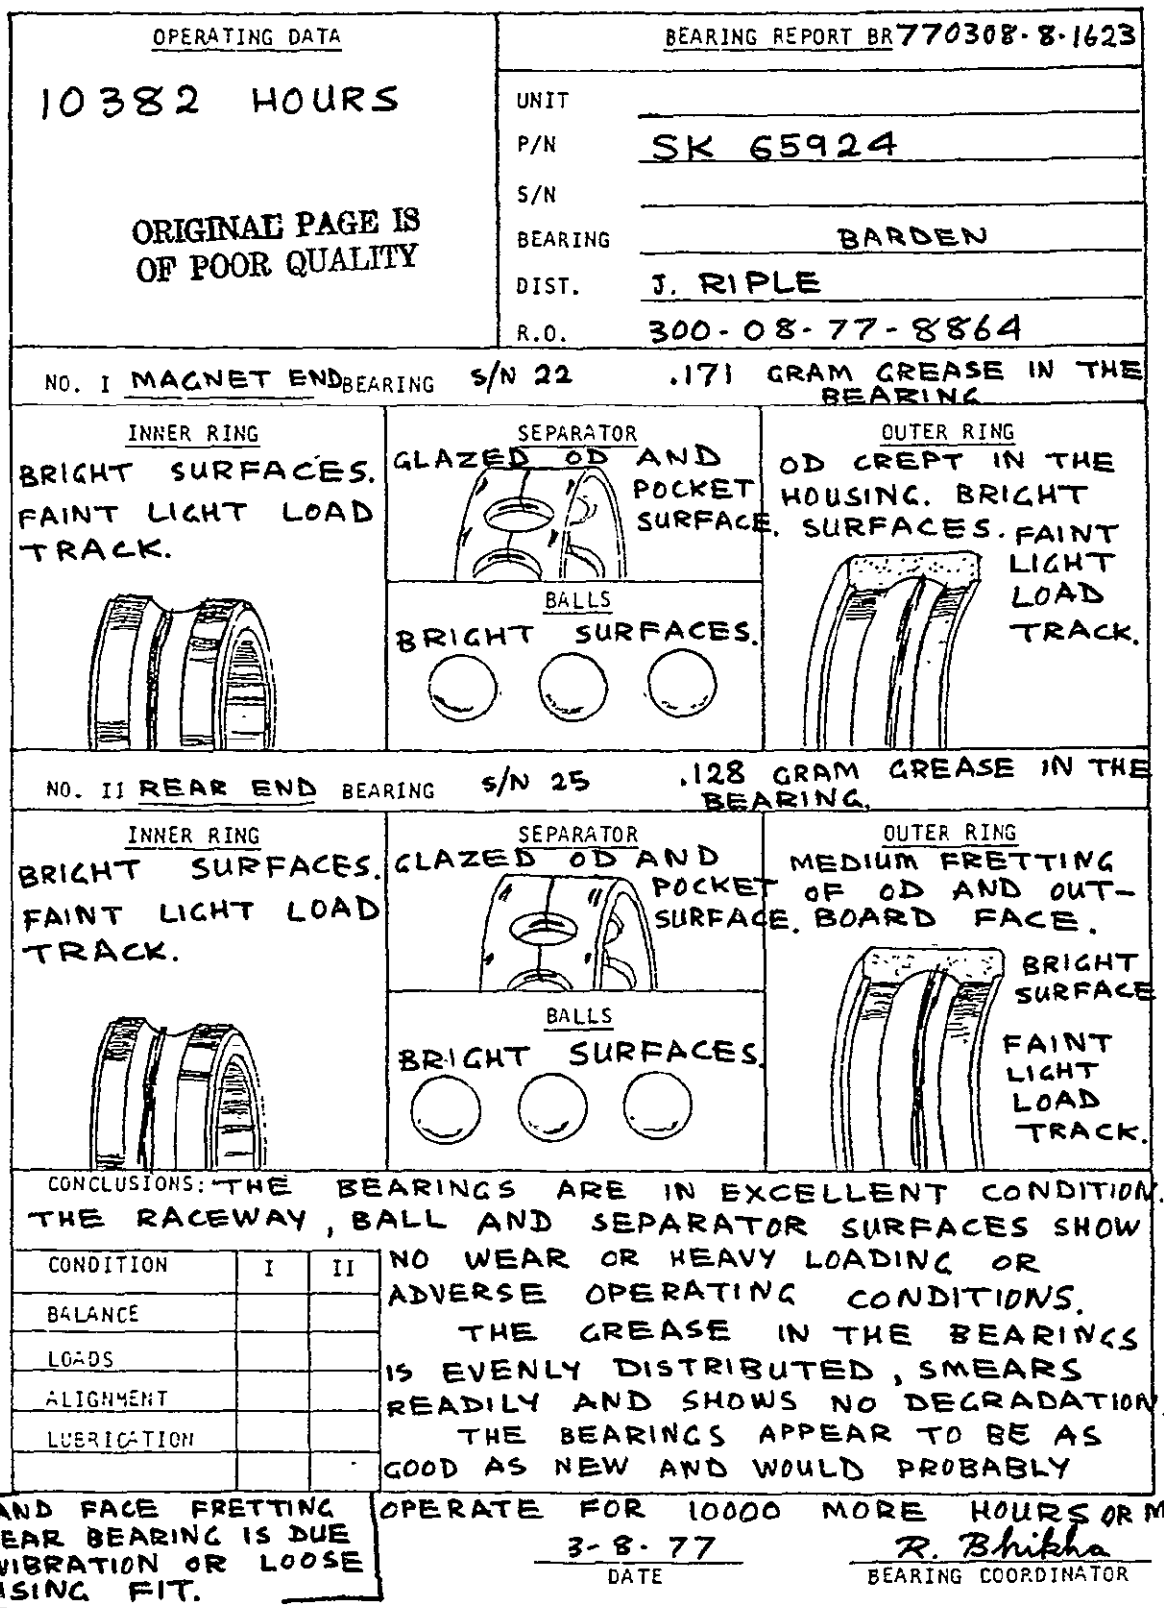 OPERATING DATA
10382 HOURS
ORIGINAL PAGE IS
OF POOR QUALITY
BEARING REPORT BR 770308-8-1623
UNIT
P/N SK 65924
S/N
BEARING BARDEN
DIST. J. RIPLE
R.O. 300-08-77-8864
NO. I MAGNET END BEARING S/N 22 .171 GRAM GREASE IN THE
BEARING
INNER RING
BRIGHT SURFACES.
FAINT LIGHT LOAD
TRACK.
SEPARATOR
GLAZED OD AND
POCKET
SURFACE.
BALLS
BRIGHT SURFACES.
OUTER RING
OD CREPT IN THE
HOUSING. BRIGHT
SURFACES. FAINT
LIGHT
LOAD
TRACK.
NO. II REAR END BEARING S/N 25 .128 GRAM GREASE IN THE
BEARING.
INNER RING
BRIGHT SURFACES.
FAINT LIGHT LOAD
TRACK.
SEPARATOR
GLAZED OD AND
POCKET
SURFACE.
BALLS
BRIGHT SURFACES.
OUTER RING
MEDIUM FRETTING
OF OD AND OUT-
BOARD FACE.
BRIGHT
SURFACE
FAINT
LIGHT
LOAD
TRACK.
CONCLUSIONS: THE BEARINGS ARE IN EXCELLENT CONDITION.
THE RACEWAY, BALL AND SEPARATOR SURFACES SHOW
NO WEAR OR HEAVY LOADING OR
ADVERSE OPERATING CONDITIONS.
THE GREASE IN THE BEARINGS
IS EVENLY DISTRIBUTED, SMEARS
READILY AND SHOWS NO DEGRADATION.
THE BEARINGS APPEAR TO BE AS
GOOD AS NEW AND WOULD PROBABLY
OPERATE FOR 10000 MORE HOURS OR M
CONDITION I II
BALANCE
LOADS
ALIGNMENT
LUBRICATION
AND FACE FRETTING
EAR BEARING IS DUE
VIBRATION OR LOOSE
SING FIT.
3-8-77
DATE
R. Bhikha
BEARING COORDINATOR